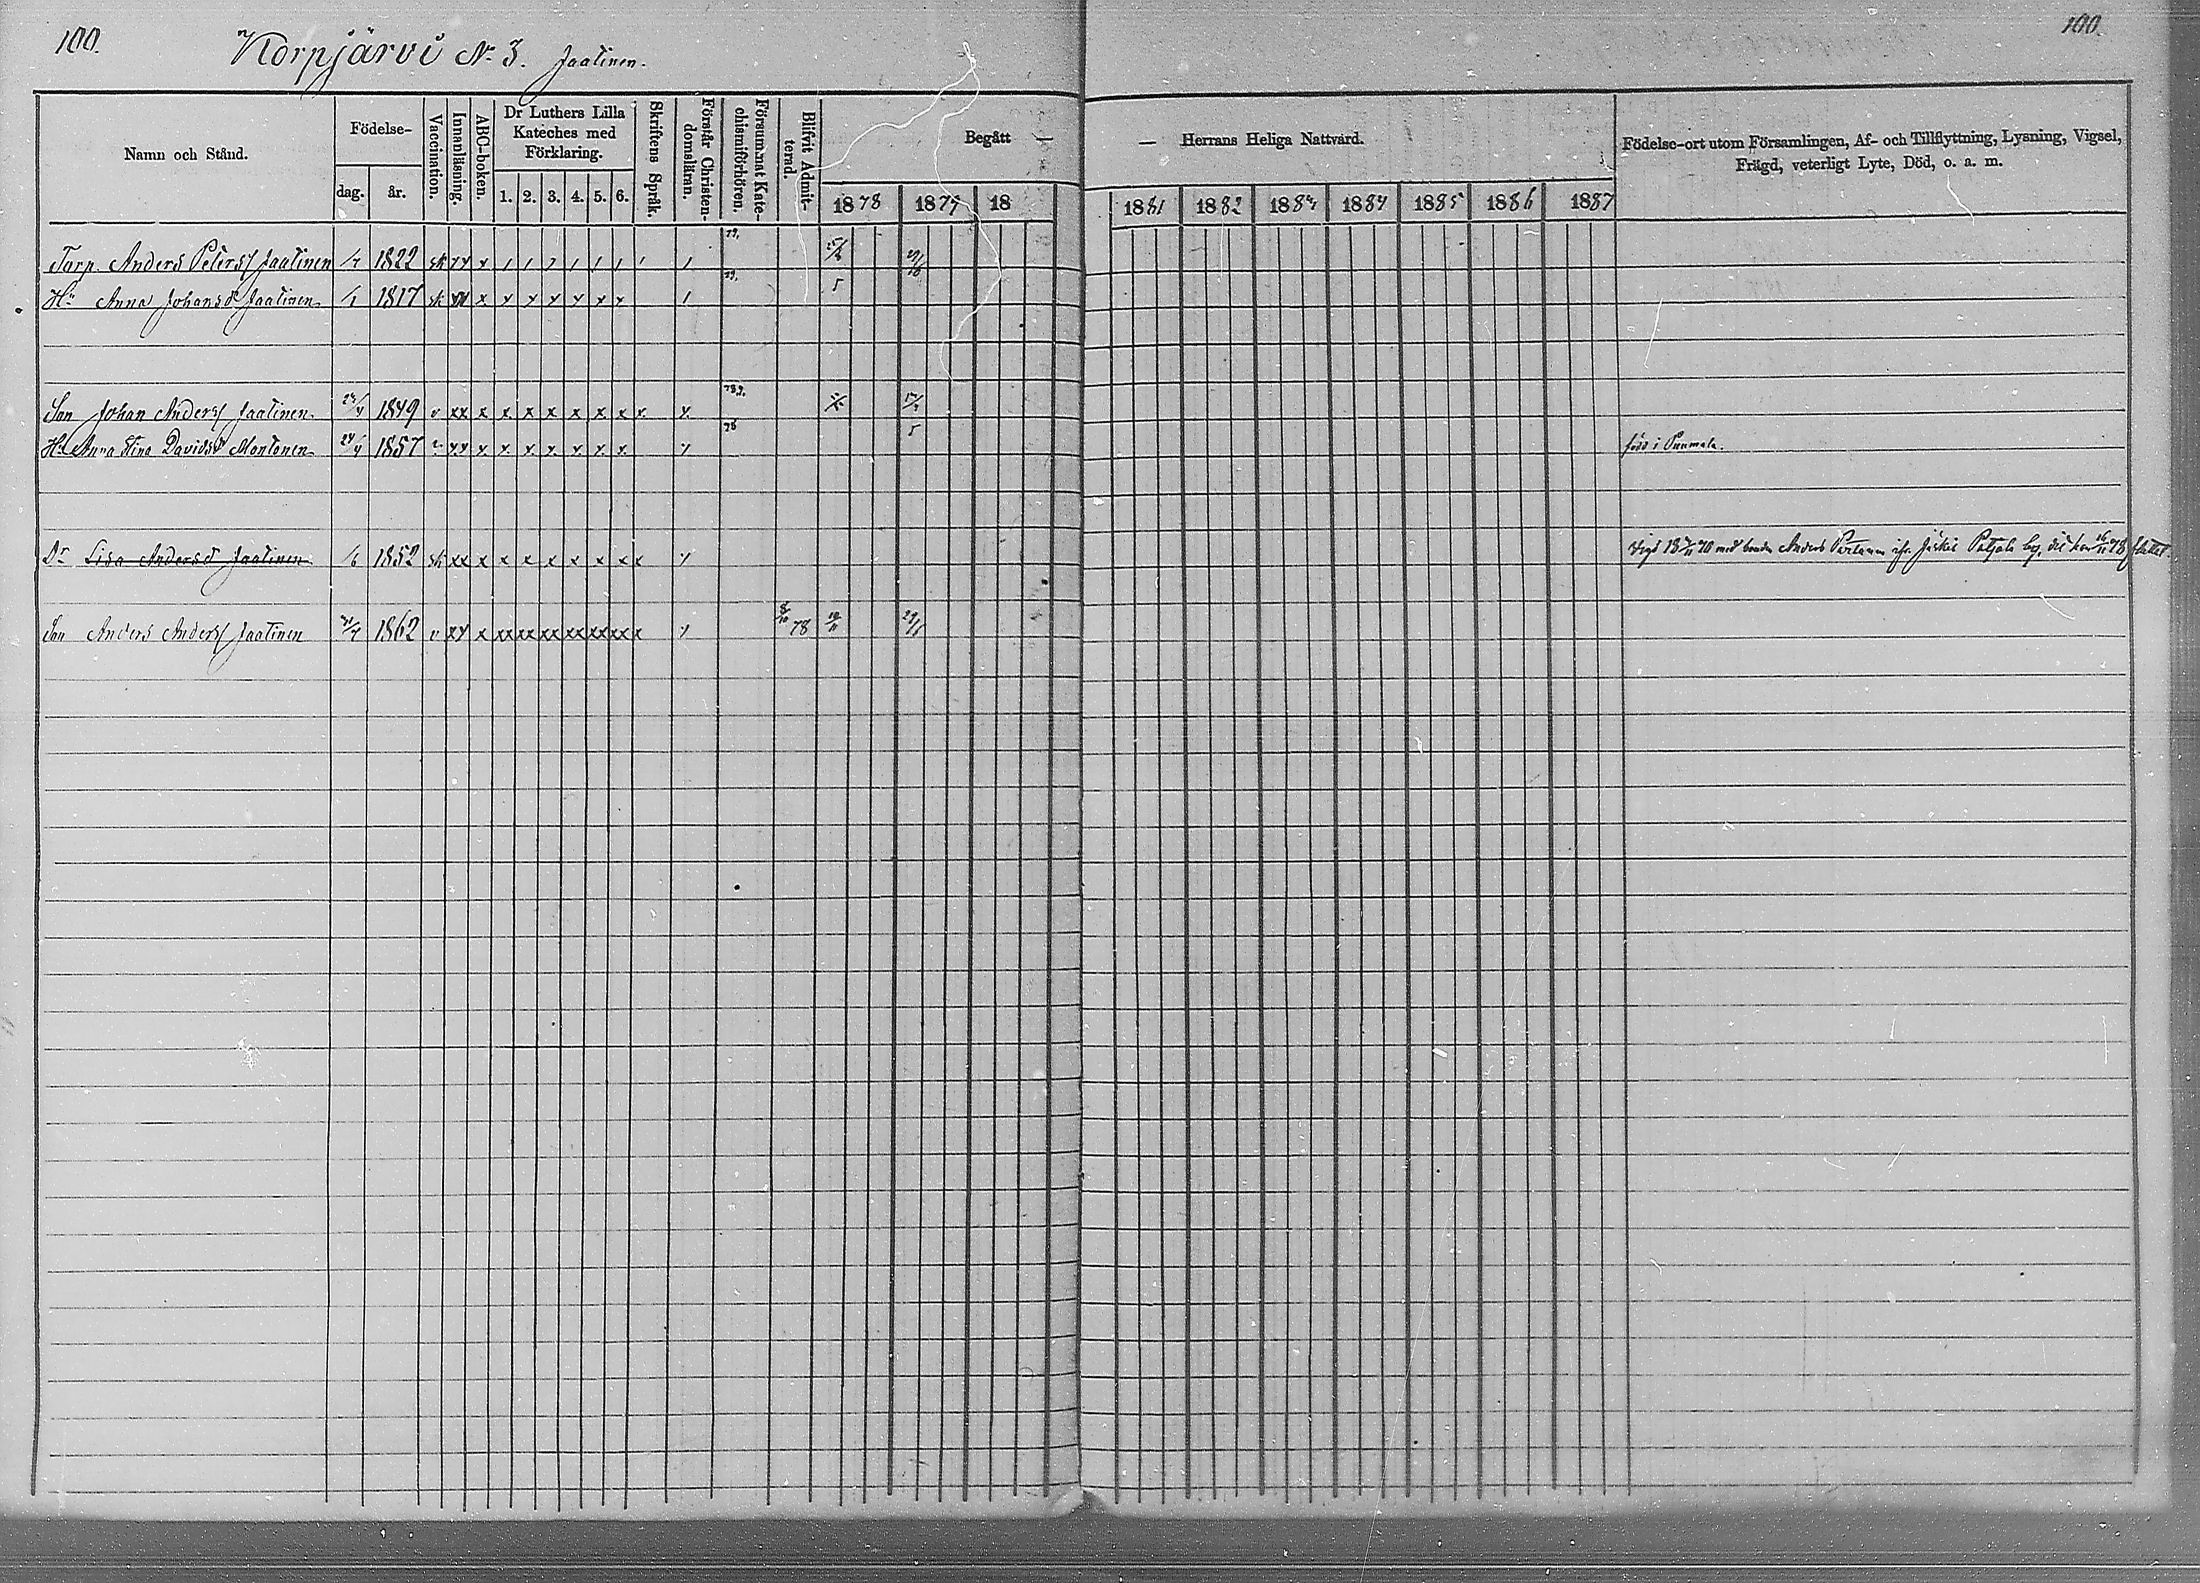 100.
Korpjärvi No 3. Jaatinen.
100.
Namn och Stånd.
Födelse-
dag.
år.
Vaccination.
Innanläsning.
ABC-boken.
Dr Luthers Lilla
Kateches med
Förklaring.
1. 2. 3. 4. 5. 6.
Skriftens Språk.
Förstår Christen-
domsläran.
Försummat Kate-
chismiförhören.
Blifvit Admit-
terad.
Begått —
— Herrans Heliga Nattvard.
1878 1879 18
1881 1882 1883 1884 1885 1886 1887
Födelse-ort utom Församlingen, Af- och Tillflyttning, Lysning, Vigsel,
Frägd, veterligt Lyte, Död, o. a. m.
Torp. Anders Peterss Jaatinen 1822 sk xx x 79.
Hu Anna Johansdr Jaatinen 1817 sk x x x x x x x 79. 5
Son Johan Anderss Jaatinen 1849 v xx x x x x x x x x x
Hu Anna Stina Davidsdr Montonen 24/4 1857 xx x x x x x x x 78 5 född i Puumala.
Dr Lisa Andersdr Jaatinen 1/6 1852 sk xx x x x x x x x x vigd med bonden Anders Partanen ifr. Jäskis Patjala by, dit hon 78 flyttat.
Son Anders Anderss Jaatinen 1862 v xx x xx xx xx xx xx xx x 78